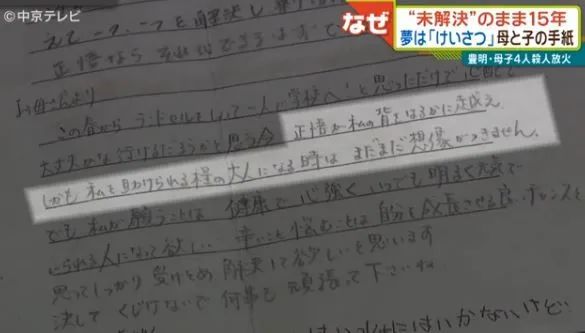 ©中京テレビ
なぜ
“未解決”のまま15年
夢は「けいさつ」母と子の手紙
豊明・母子4人殺人放火
えて一つ一つを解決し
正悟なら それができると
お母さんより
この春から ランドセルをしょって一人で学校へ と思っただけで心配で
大丈夫かな 行けるだろうかと思う今 正悟が私の背をはるかに越え
しかも 私を助けられる程の大人になる時は まだまだ想像がつきません。
でも私が願うことは 健康で 心強く いつでも明るく元気で
いられる人になって欲しい 辛いこと悩むことは自分を成長させる良いチャンスと
思ってしっかり受けとめ 解決して欲しいと思います
決して くじけないで 何事も 頑張って下さいね
はいかないけど